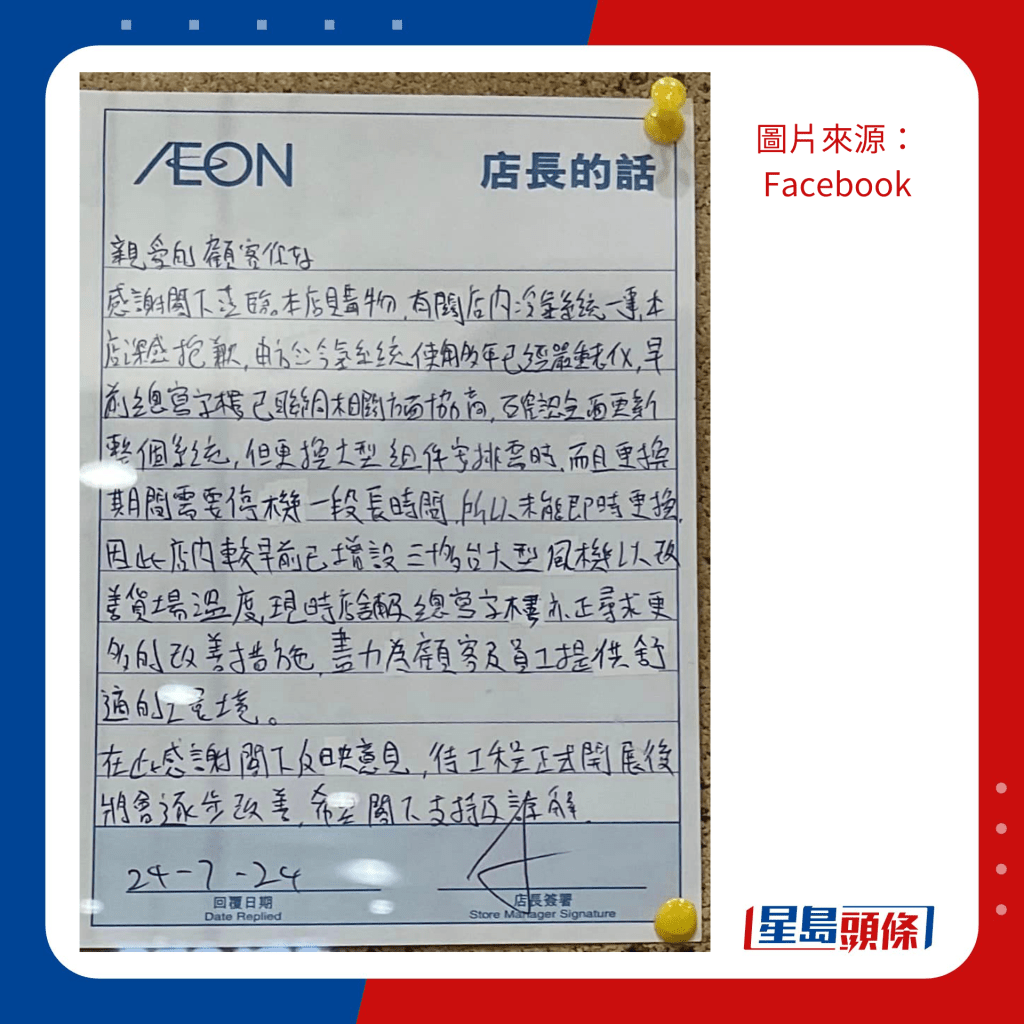 圖片來源：
Facebook
ÆON
店長的話
親愛的顧客你好
感謝閣下蒞臨本店購物,有關店內冷氣系統一事,本
店深感抱歉,由於冷氣系統使用多年已經嚴重老化,早
前總寫字樓已聯絡相關方面協商,確認全面更新
整個系統,但更換大型組件安排需時,而且更換
期間需要停機一段長時間,所以未能即時更換,
因此店內較早前已增設三十多台大型風機以改
善貨場溫度,現時店舖及總寫字樓亦正尋求更
多的改善措施,盡力為顧客及員工提供舒
適的環境。
在此感謝閣下反映意見,待工程正式開展後
將會逐步改善,希望閣下支持及諒解.
24-7-24
回覆日期
Date Replied
店長簽署
Store Manager Signature
星島頭條